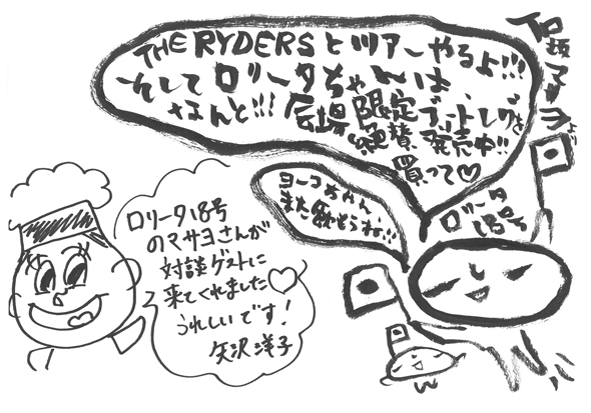 THE RYDERSとツアーやるよ!!!
そしてロリータちゃんは、
なんと!!! 会場限定ブートレグを
絶賛発売中!!
買って♡
石坂マサヨより
ヨーコちゃん、
また飲もうね!!
ロリータ
18号
ロリータ18号
のマサヨさんが
対談ゲストに
来てくれました♡
うれしいです!
矢沢洋子